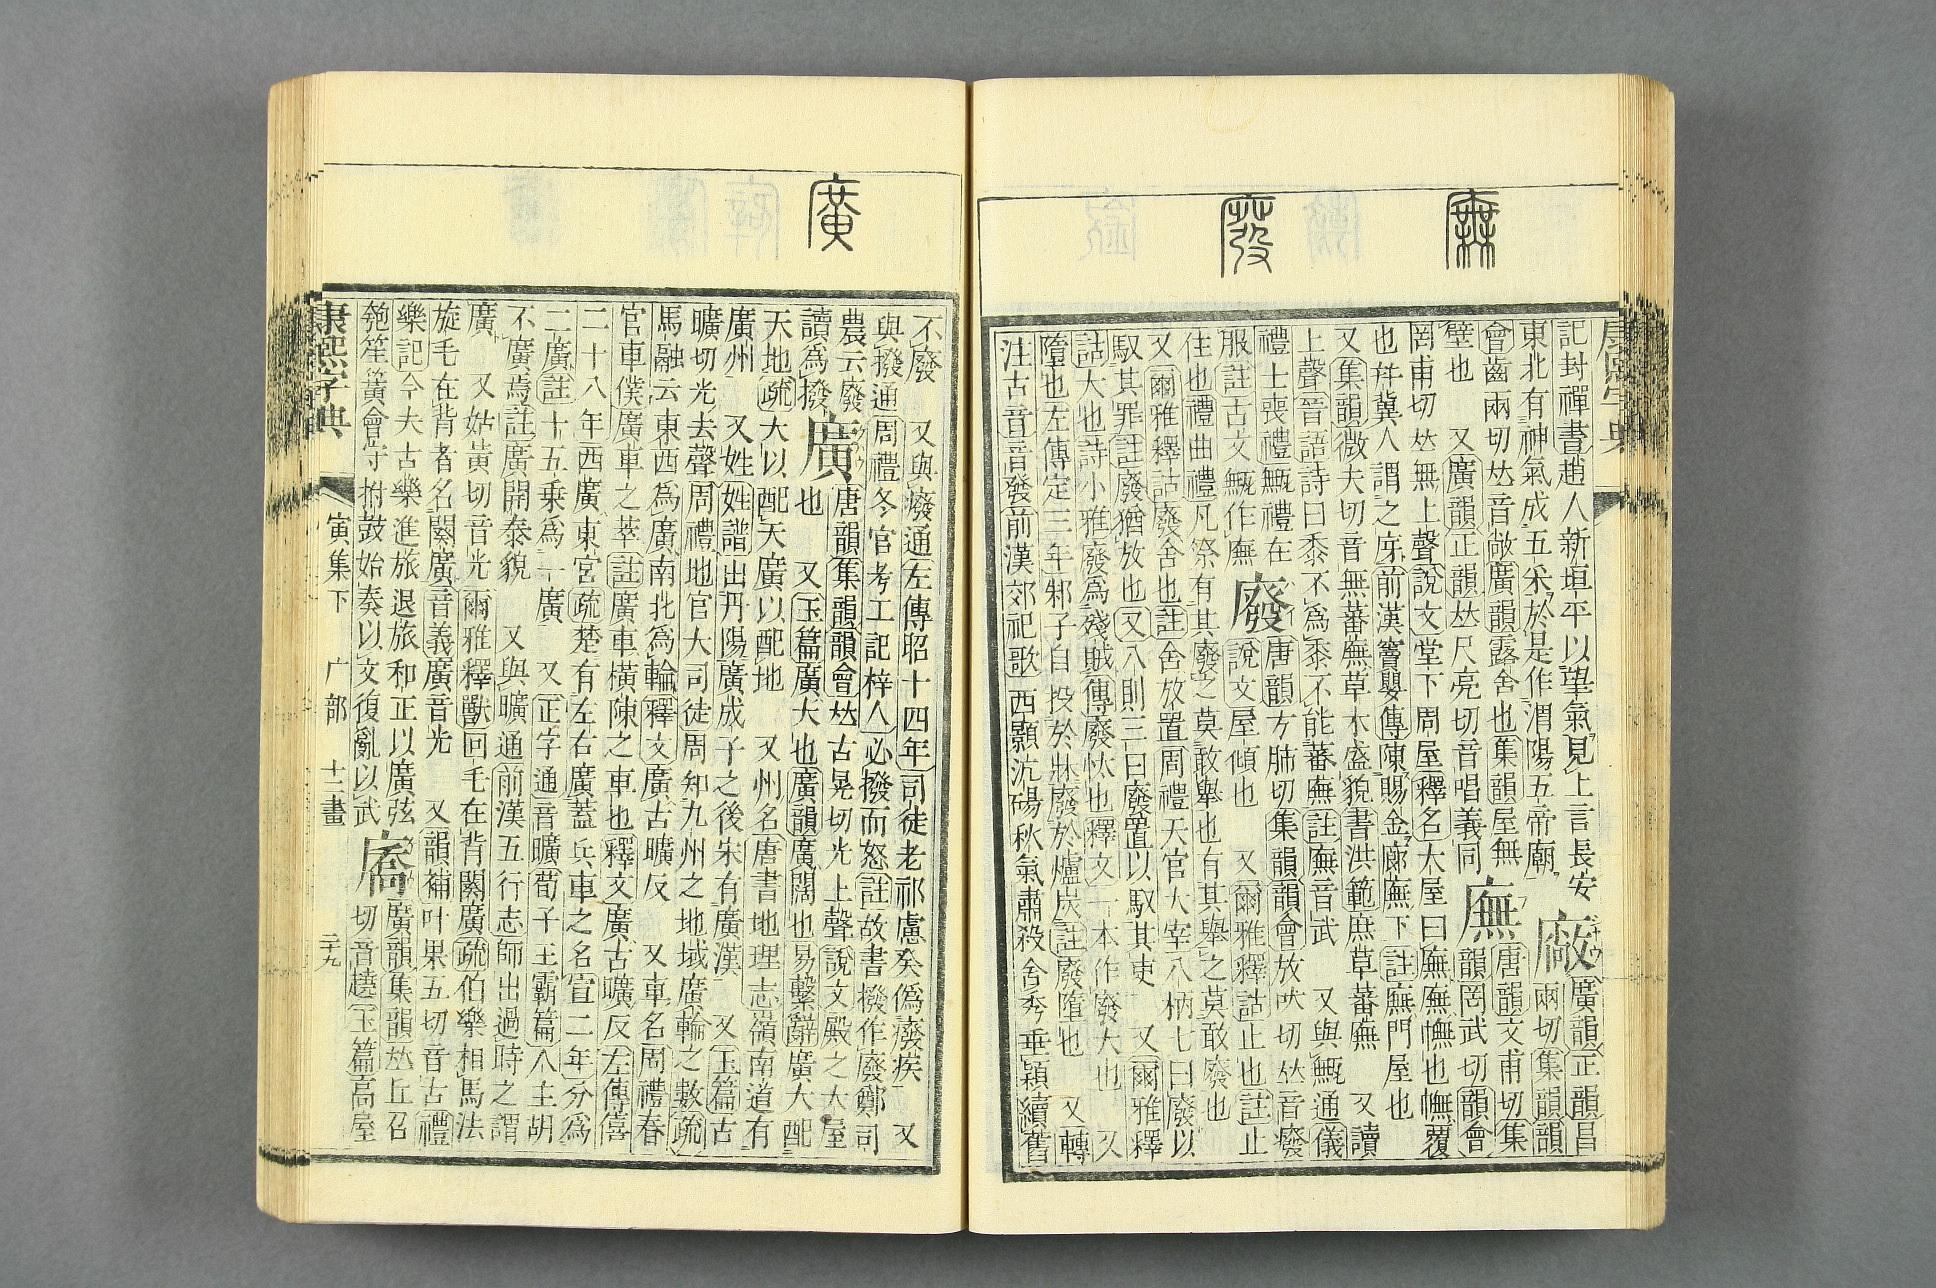 廡
廢
記封禪書趙人新垣平以望氣見上言長安 廠 廣韻正韻昌
東北有神氣成五采於是作渭陽五帝廟 兩切集韻韻
會齒兩切𠀤音敞廣韻露舍也集韻屋無 廡 唐韻文甫切集
壁也 又廣韻正韻𠀤尺亮切音唱義同 韻罔武切韻會
罔甫切𠀤無上聲說文堂下周屋釋名大屋曰廡廡幠也幠覆
也幷冀人謂之庌前漢竇嬰傳陳賜金廊廡下註廡門屋也
又集韻微夫切音無蕃廡草木盛貌書洪範庶草蕃廡 又讀
上聲晉語詩曰黍不爲黍不能蕃廡註廡音武 又與甒通儀
禮士喪禮甒禮在 廢 唐韻方肺切集韻韻會放吠切𠀤音癈
服註古文甒作廡 說文屋傾也 又爾雅釋詁止也註止
住也禮曲禮凡祭有其廢之莫敢舉也有其舉之莫敢廢也
又爾雅釋詁廢舍也註舍放置周禮天官大宰八柄七曰廢以
馭其罪註廢猶放也又八則三曰廢置以馭其吏 又爾雅釋
詁大也詩小雅廢爲殘賊傳廢忕也釋文一本作廢大也 又
墮也左傳定三年邾子自投於牀廢於爐炭註廢墮也 又轉
注古音音發前漢郊祀歌西顥沆碭秋氣肅殺含秀垂穎續舊
廣
不廢 又與癈通左傳昭十四年司徒老祁慮癸僞癈疾 又
與撥通周禮冬官考工記梓人必撥而怒註故書撥作廢鄭司
農云廢 廣 唐韻集韻韻會𠀤古晃切光上聲說文殿之大屋
讀爲撥 也 又玉篇廣大也廣韻廣闊也易繫辭廣大配
天地疏大以配天廣以配地 又州名唐書地理志嶺南道有
廣州 又姓姓譜出丹陽廣成子之後宋有廣漢 又玉篇古
曠切光去聲周禮地官大司徒周知九州之地域廣輪之數疏
馬融云東西爲廣南北爲輪釋文廣古曠反 又車名周禮春
官車僕廣車之萃註廣車橫陳之車也釋文廣古曠反左傳僖
二十八年西廣東宮疏楚有左右廣蓋兵車之名宣二年分爲
二廣註十五乗爲一廣 又正字通音曠荀子王霸篇人主胡
不廣焉註廣開泰貌 又與曠通前漢五行志師出過時之謂
廣 又姑黃切音光爾雅釋獸回毛在背闋廣疏伯樂相馬法
旋毛在背者名闋廣音義廣音光 又韻補叶果五切音古禮
樂記今夫古樂進旅退旅和正以廣弦 㢗 廣韻集韻𠀤丘召
匏笙簧會守拊鼓始奏以文復亂以武 切音趬玉篇高屋
康熙字典 寅集下 广部 十二畫 二十九